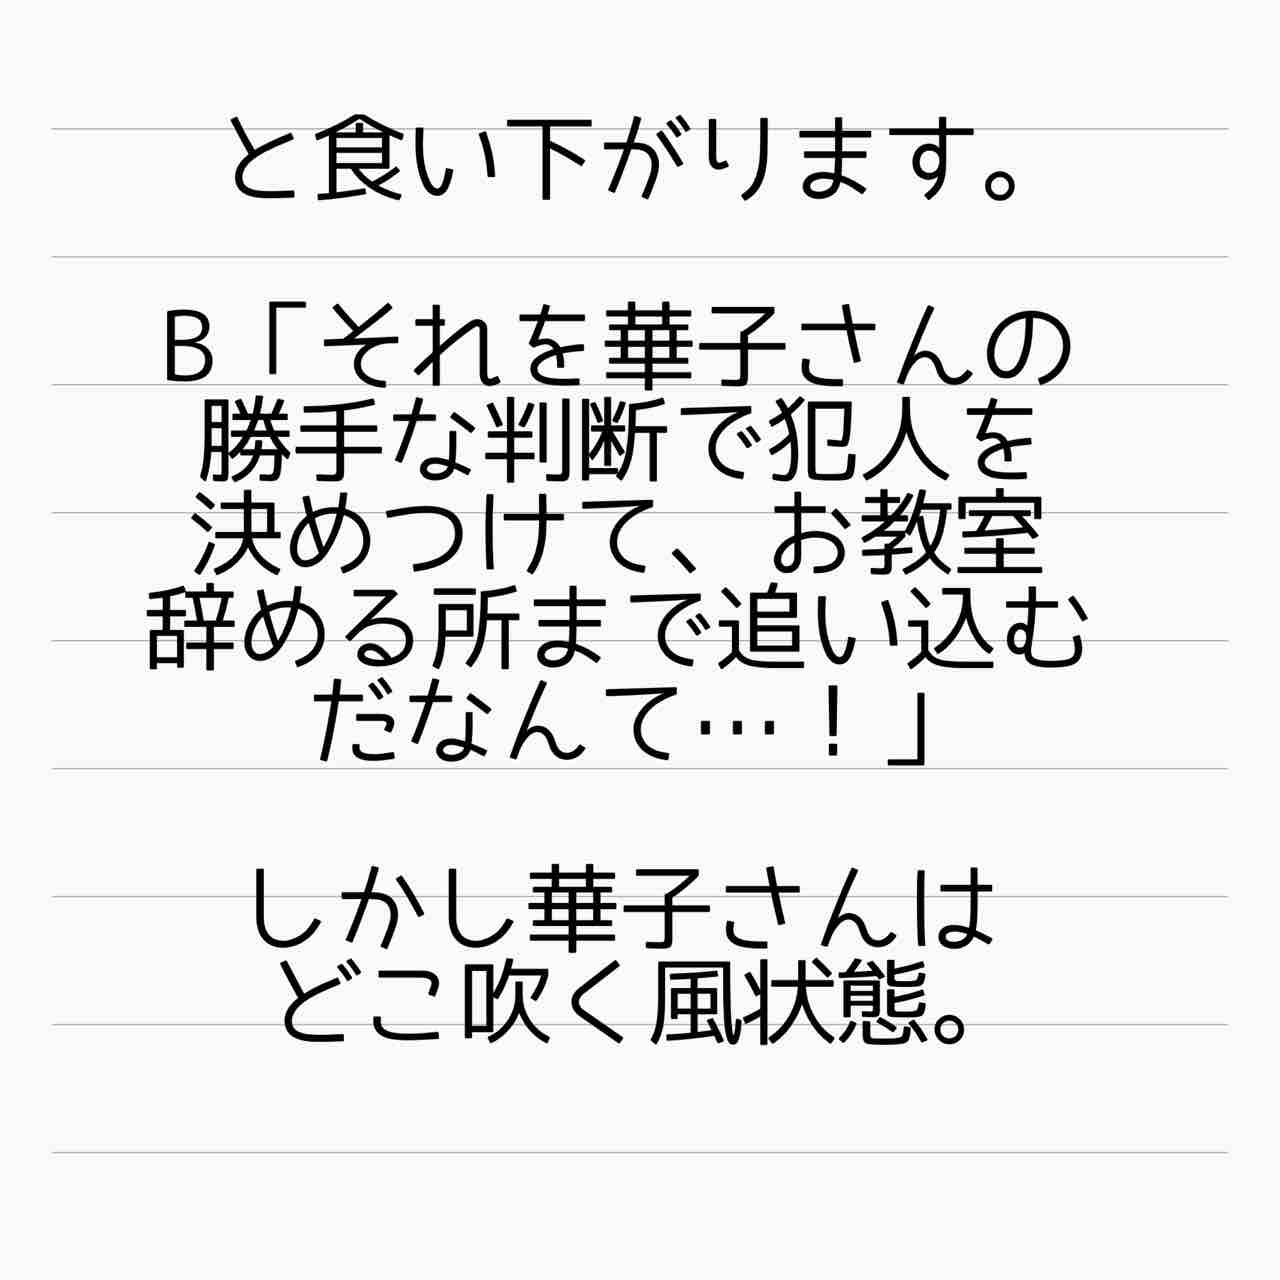 と食い下がります。
B「それを華子さんの
勝手な判断で犯人を
決めつけて、お教室
辞める所まで追い込む
だなんて…！」
しかし華子さんは
どこ吹く風状態。